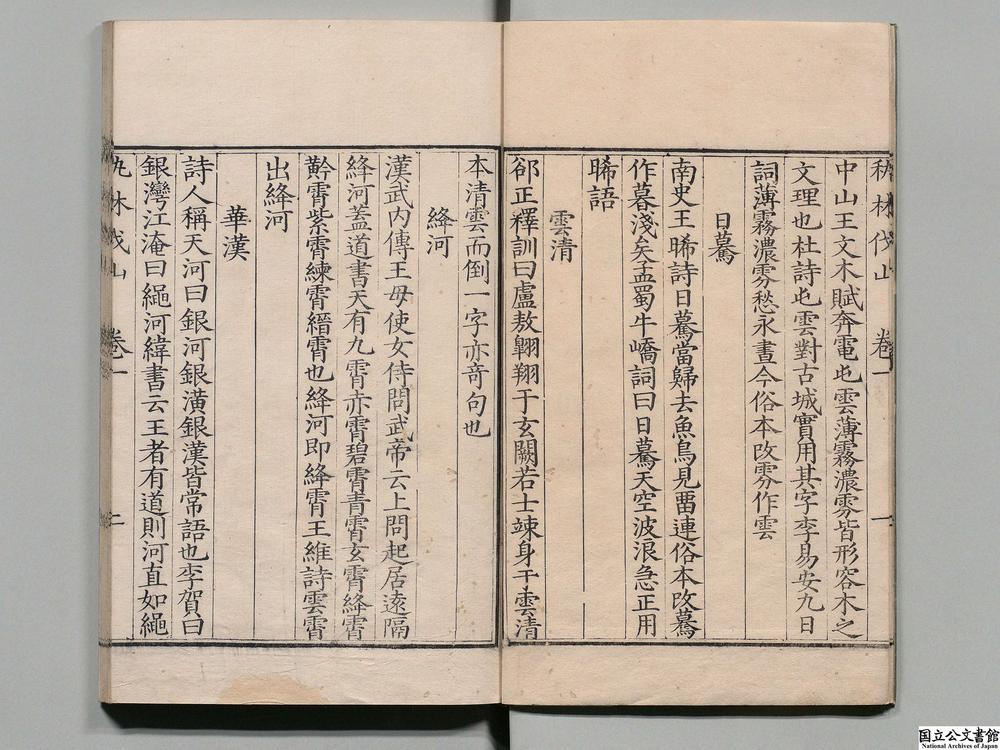 秇林伐山 卷一 一
中山王文木賦奔電屯雲薄霧濃雰皆形容木之
文理也杜詩屯雲對古城實用其字李易安九日
詞薄霧濃雰愁永晝今俗本改雰作雲
日驀
南史王晞詩日驀當歸去魚鳥見畱連俗本改驀
作暮淺矣孟蜀牛嶠詞曰日驀天空波浪急正用
晞語
雲清
郤正釋訓曰盧敖翺翔于玄闕若士竦身于雲清
本清雲而倒一字亦竒句也
絳河
漢武内傳王母使女侍問武帝云上問起居遠隔
絳河蓋道書天有九霄赤霄碧霄青霄玄霄絳霄
黅霄紫霄練霄縉霄也絳河即絳霄王維詩雲霄
出絳河
華漢
詩人稱天河曰銀河銀潢銀漢皆常語也李賀曰
銀灣江淹曰繩河緯書云王者有道則河直如繩
秇林伐山 卷一 二
国立公文書館
National Archives of Japan